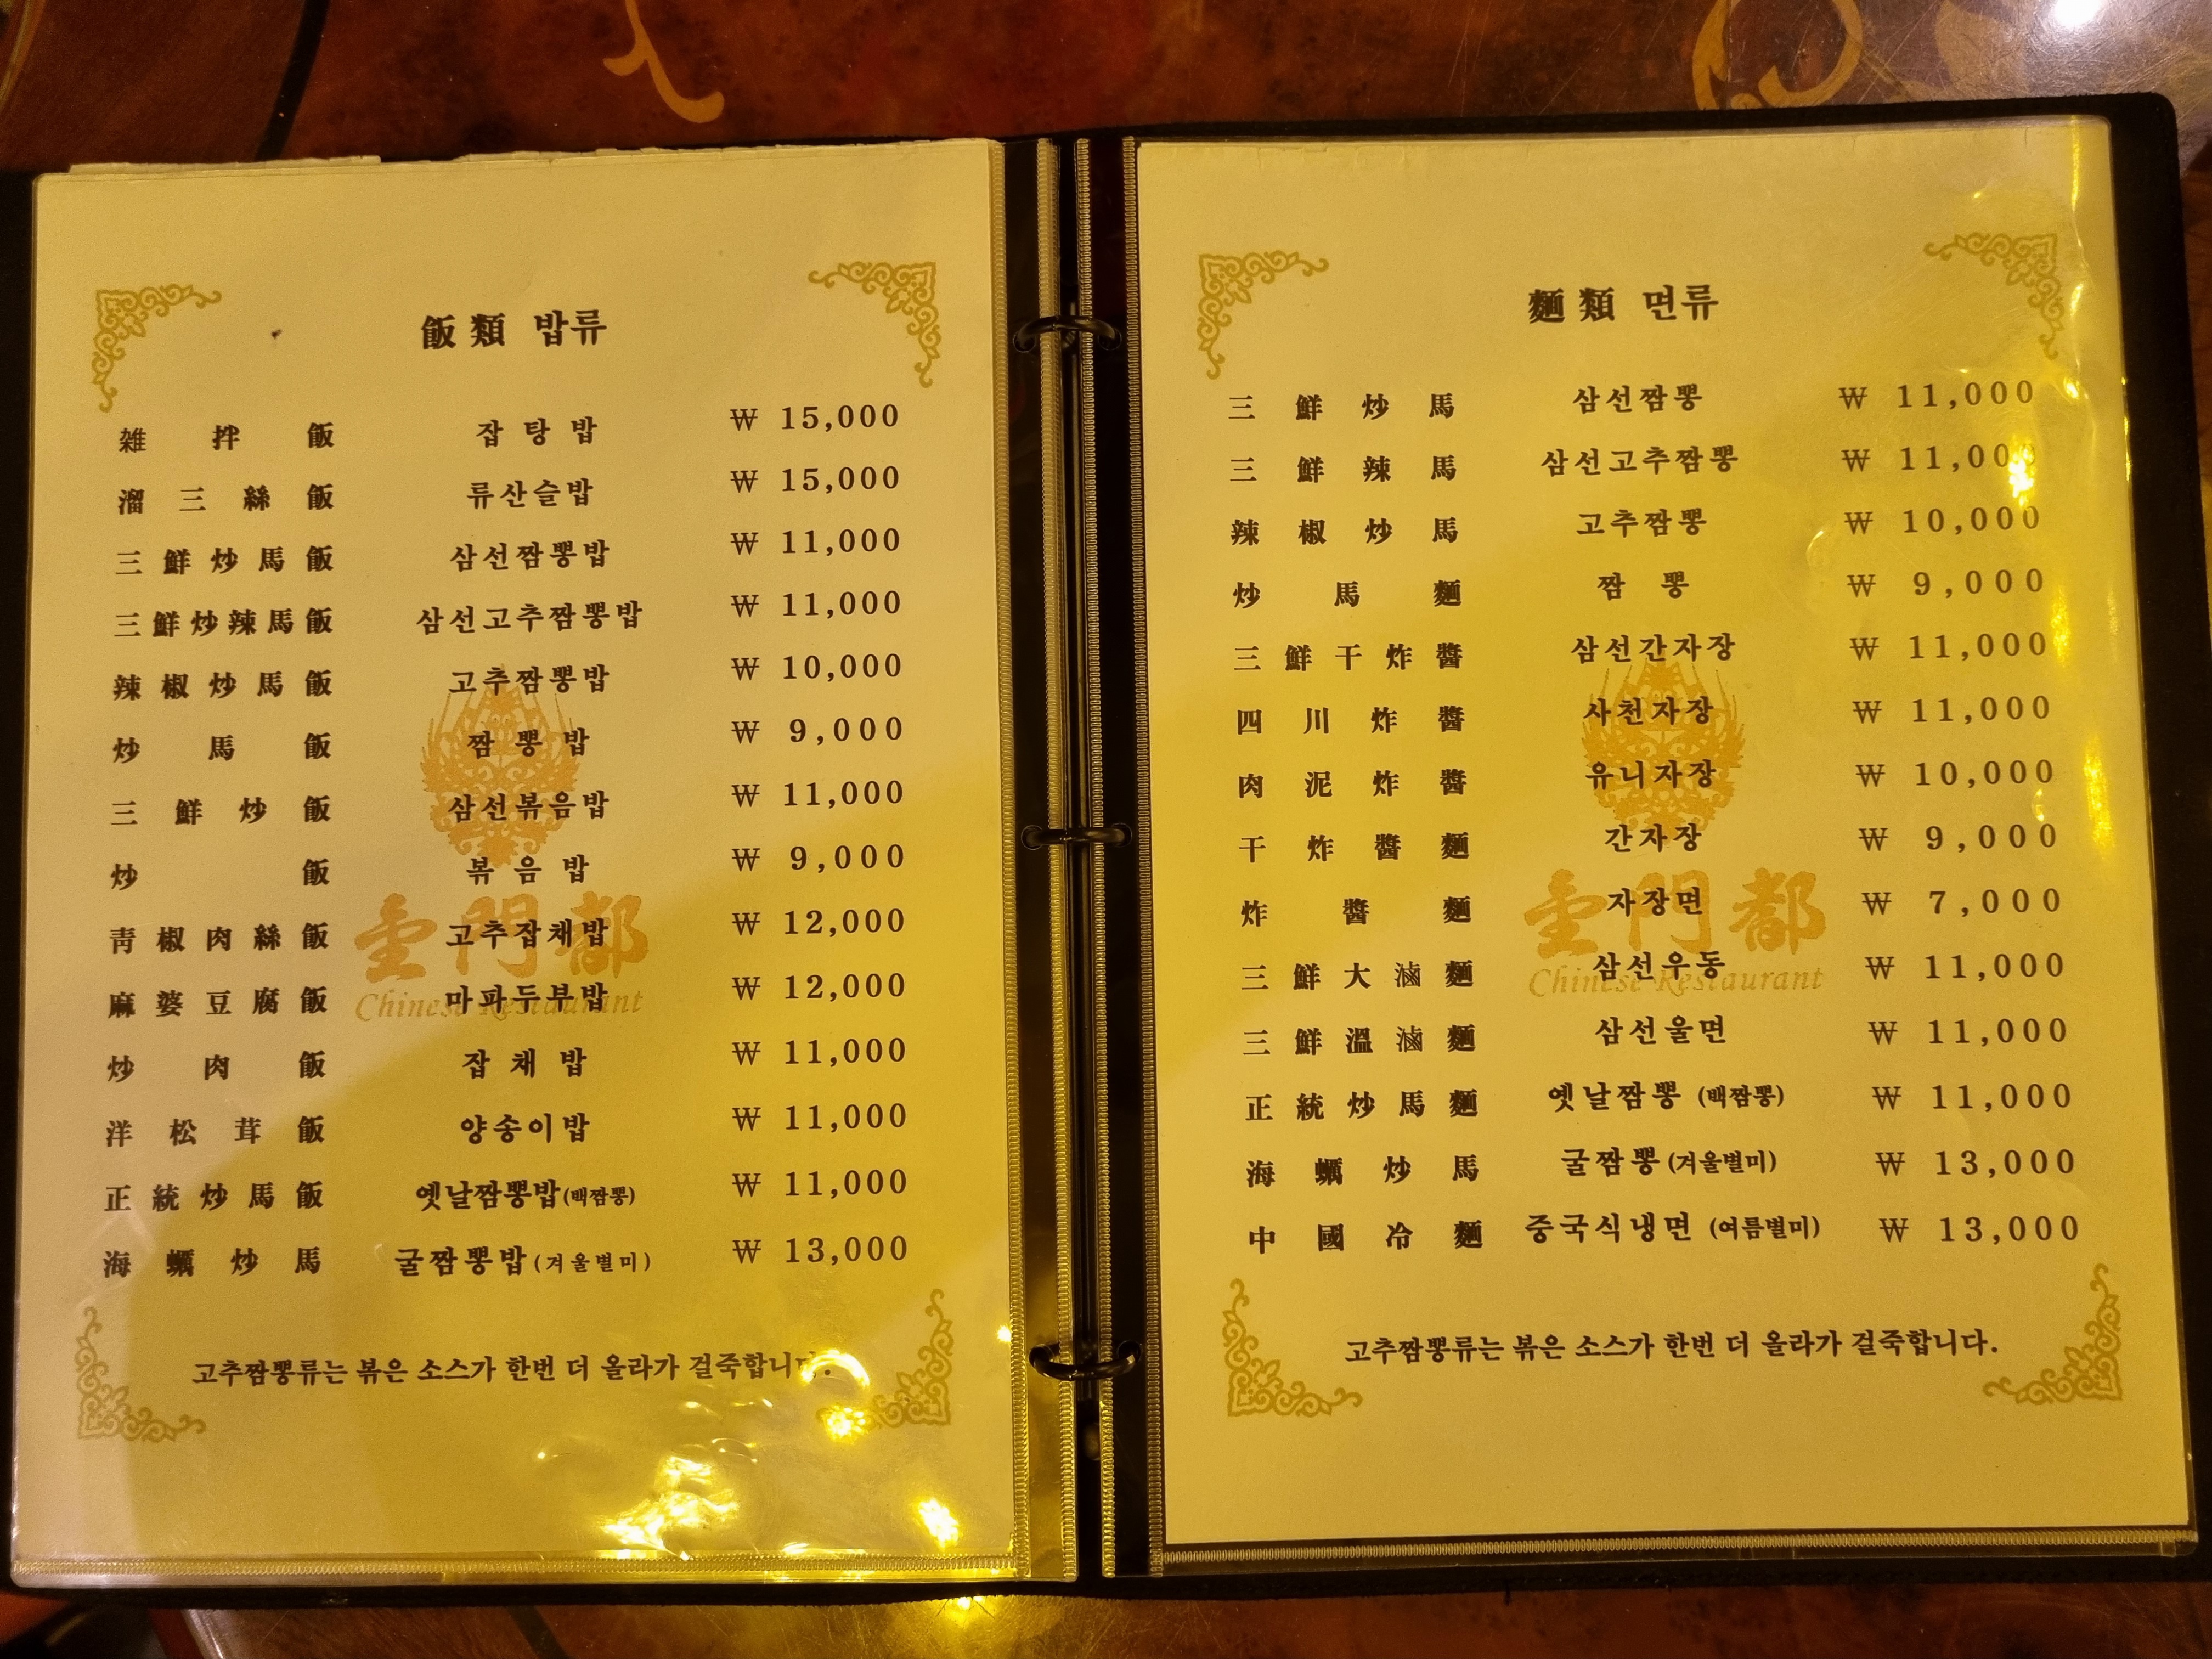 飯類 밥류
雑拌飯 잡탕밥 ₩ 15,000
溜三絲飯 류산슬밥 ₩ 15,000
三鮮炒馬飯 삼선짬뽕밥 ₩ 11,000
三鮮炒辣馬飯 삼선고추짬뽕밥 ₩ 11,000
辣椒炒馬飯 고추짬뽕밥 ₩ 10,000
炒馬飯 짬뽕밥 ₩ 9,000
三鮮炒飯 삼선볶음밥 ₩ 11,000
炒飯 볶음밥 ₩ 9,000
靑椒肉絲飯 고추잡채밥 ₩ 12,000
麻婆豆腐飯 마파두부밥 ₩ 12,000
炒肉飯 잡채밥 ₩ 11,000
洋松茸飯 양송이밥 ₩ 11,000
正統炒馬飯 옛날짬뽕밥(백짬뽕) ₩ 11,000
海蠣炒馬 굴짬뽕밥(겨울별미) ₩ 13,000
고추짬뽕류는 볶은 소스가 한번 더 올라가 걸죽합니다.
門都
Chinese Restaurant
麵類 면류
三鮮炒馬 삼선짬뽕 ₩ 11,000
三鮮辣馬 삼선고추짬뽕 ₩ 11,000
辣椒炒馬 고추짬뽕 ₩ 10,000
炒馬麵 짬뽕 ₩ 9,000
三鮮干炸醬 삼선간자장 ₩ 11,000
四川炸醬 사천자장 ₩ 11,000
肉泥炸醬 유니자장 ₩ 10,000
干炸醬麵 간자장 ₩ 9,000
炸醬麵 자장면 ₩ 7,000
三鮮大滷麵 삼선우동 ₩ 11,000
三鮮溫滷麵 삼선울면 ₩ 11,000
正統炒馬麵 옛날짬뽕 (백짬뽕) ₩ 11,000
海蠣炒馬 굴짬뽕(겨울별미) ₩ 13,000
中國冷麵 중국식냉면 (여름별미) ₩ 13,000
고추짬뽕류는 볶은 소스가 한번 더 올라가 걸죽합니다.
門都
Chinese Restaurant